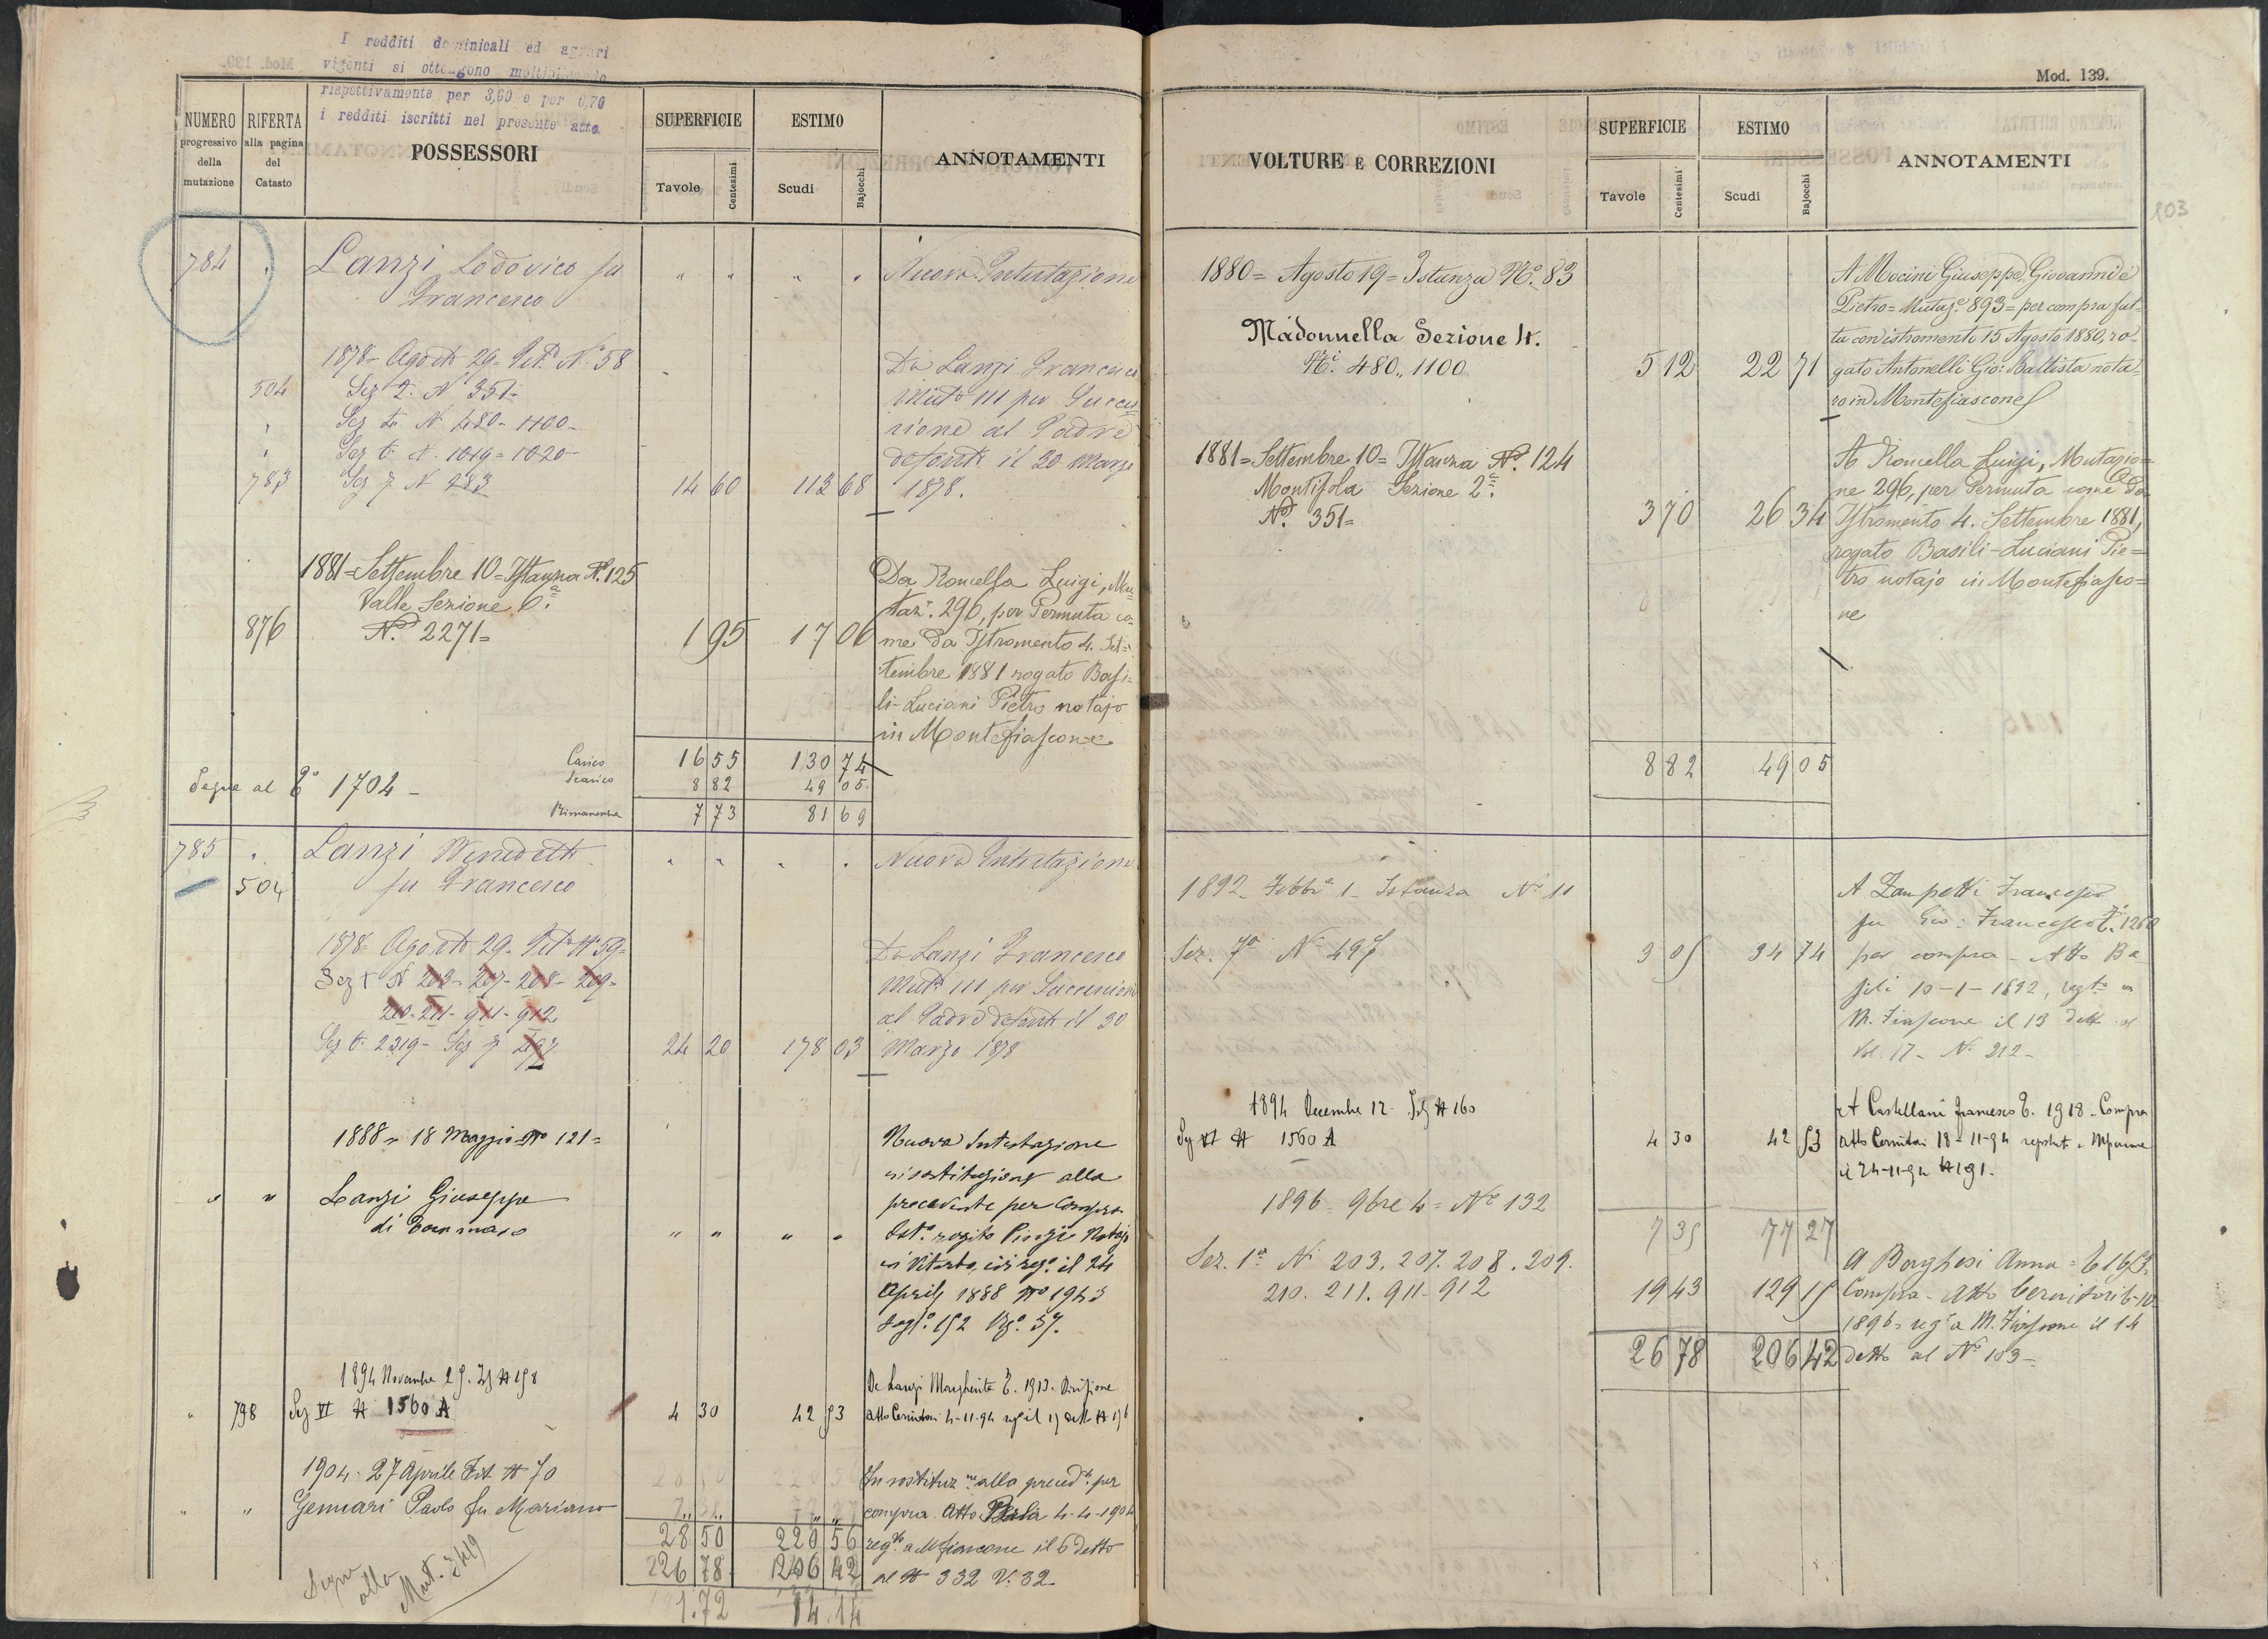 I redditi dominicali ed agrari
vigenti si ottengono moltiplicando
rispettivamente per 3,60 e per 0,70
i redditi iscritti nel presente atto
NUMERO progressivo della mutazione
RIFERTA alla pagina del Catasto
POSSESSORI
SUPERFICIE
Tavole Centesimi
ESTIMO
Scudi Bajocchi
ANNOTAMENTI
784 Lanzi Lodovico fu " " " " Nuova Intestazione
Francesco
1878 - Agosto 29 - Pet. N.° 58 Da Lanzi Francesco
504 Sez 2. N. 351 - Mut. 111 per Succes
" Sez 4. N. 480 - 1100 - sione al Padre
" Sez 6. N. 1019 = 1020 - defunto il 30 Marzo
783 Sez 7. N 283 14 60 113 68 1878.
1881 = Settembre 10 = Istanza N. 125 Da Roncella Luigi, Mu
Valle Sezione 6.a taz. 296, per Permuta co=
876 N.° 2271 = 1 95 17 06 me da Istromento 4. Set=
tembre 1881 rogato Basi=
li-Luciani Pietro notajo
in Montefiascone
Carico 16 55 130 74
Segue al 1704 - Scarico 8 82 49 05
Rimanenza 7 73 81 69
785 " Lanzi Benedetto " " " " Nuova Intestazione
504 fu Francesco
1878 - Agosto 29 - Pet. N. 59 = Da Lanzi Francesco
Sez 1 N 203 - 207 - 208 - 209 - Mut. 111 per Successione
210 - 211 - 911 - 912 al Padre defunto il 30
Sez 6. 2319 - Sez 7 497 24 20 178 03 Marzo 1878
1888 = 18 Maggio = N° 121 = Nuova Intestazione
in sostituzione alla
" " Lanzi Giuseppe precedente per Compra
di Tommaso " " " " rogito Pinzi Notajo
in Viterbo, ivi reg.° il 24
Aprile 1888 N° 1943
fogl.° 152 37.
1894 Novembre 29. N 158 Da Lanzi Margherita 1913. Divisione
" 798 Sez VI N 1560 A 4 30 42 53 atto Cernitori 4-11-94
1904. 27 Aprile Ist. N 70 In sostituz.ne alla preced.te per
" " Gennari Paolo fu Mariano " " " " compra Atto 4-4-1904
28 50 220 56 reg.to a Mfiascone il 6 detto
26 78 206 42 al N 332 V. 32
1.72 14.14
Segue alla Mut. 2419
Mod. 139.
VOLTURE E CORREZIONI
SUPERFICIE
Tavole Centesimi
ESTIMO
Scudi Bajocchi
ANNOTAMENTI
203
1880 = Agosto 19 = Istanza N.° 83 A Mocini Giuseppe, Giovanni e
Pietro = Mutaz.e 893 = per compra fat-
Madonnella Sezione 4. ta con istromento 15 Agosto 1880, ro-
N.i 480., 1100 5 12 22 71 gato Antonelli Gio: Battista nota-
ro in Montefiascone
1881 = Settembre 10 = Istanza N.° 124 A Roncella Luigi, Mutazio=
Montisola Sezione 2.a ne 296, per Permuta come da
N.° 351 = 3 70 26 34 Istromento 4. Settembre 1881,
rogato Basili-Luciani Pie=
tro notajo in Montefiasco=
ne
8 82 49 05
1892 - Febb.o 1 - Istanza N° 11 A Zampetti Francesco
fu Gio: Francesco 1260
Sez. 7a N° 497 3 05 34 74 per compra - Atto Ba
sili 10-1-1892, reg.to a
M. Fiascone il 13 detto al
Vol. 17 - N. 212 -
1894 Decembre 12. N 160 A Castellani Francesco 1918 - Compra
Sez VI N 1560 A 4 30 42 53 atto Cernitori 18-11-94
il 24-11-94 N 191.
1896 = 9bre 4 = N° 132
7 35 77 27
Sez. 1a N. 203. 207. 208. 209. A Borghesi Anna = 1653
210. 211. 911 - 912 19 43 129 15 Compra - Atto Cernitori 6-10
1896 = reg.° a M. Fiascone il 14
26 78 206 42 detto al N° 103 -